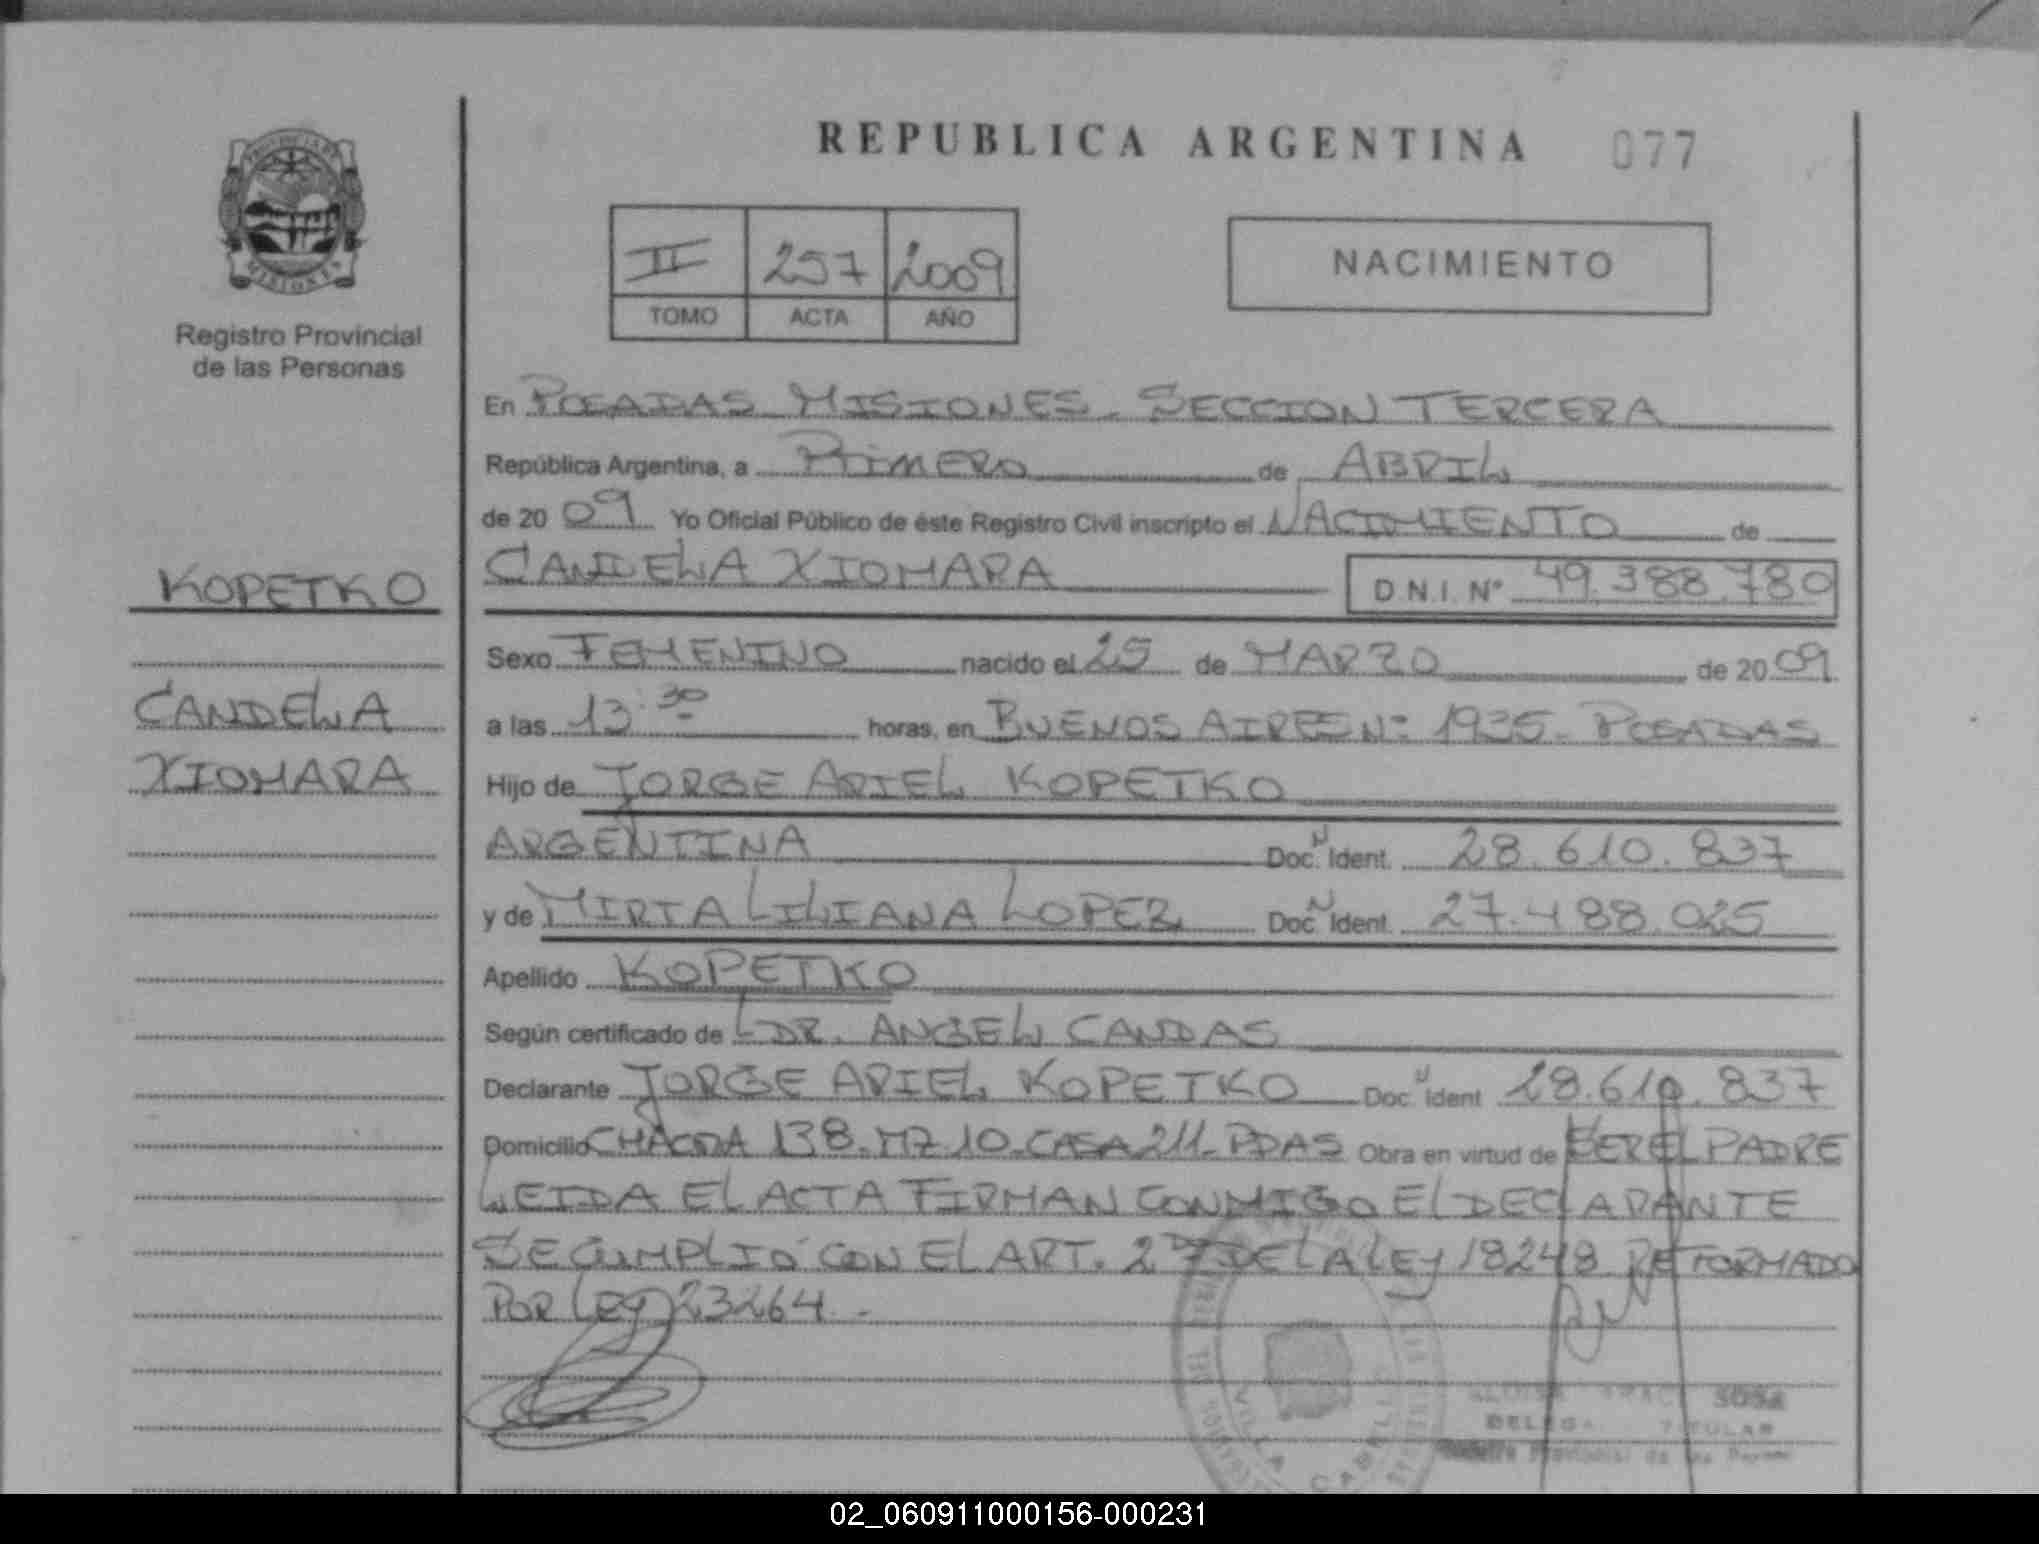 REPUBLICA ARGENTINA 077
PROVINCIA DE
MISIONES
Registro Provincial
de las Personas
II 257 2009
TOMO ACTA AÑO
NACIMIENTO
En POSADAS MISIONES. SECCION TERCERA
República Argentina, a PRIMERO de ABRIL
de 20 09 Yo Oficial Público de éste Registro Civil inscripto el NACIMIENTO de
CANDELA XIOMARA D.N.I. Nº 49.388.780
KOPETKO
CANDELA
XIOMARA
Sexo FEMENINO nacido el 25 de MARZO de 20 09
a las 13:30 horas, en BUENOS AIRES Nº: 1935. POSADAS
Hijo de JORGE ARIEL KOPETKO
ARGENTINA Doc. N Ident. 28.610.837
y de MIRTA LILIANA LOPEZ Doc. N Ident. 27.488.025
Apellido KOPETKO
Según certificado de DR. ANGEL CANDAS
Declarante JORGE ARIEL KOPETKO Doc. N Ident 28.610.837
Domicilio CHACRA 138. MZ 10. CASA 211. PDAS Obra en virtud de SER EL PADRE
LEIDA EL ACTA FIRMAN CONMIGO EL DECLARANTE
SE CUMPLIO CON EL ART. 2º DE LA LEY 18248 REFORMADO
POR LEY 23264.-
VILLA CABELLO
SOSA
DELEGA TITULAR
Provincial de las
02_060911000156-000231